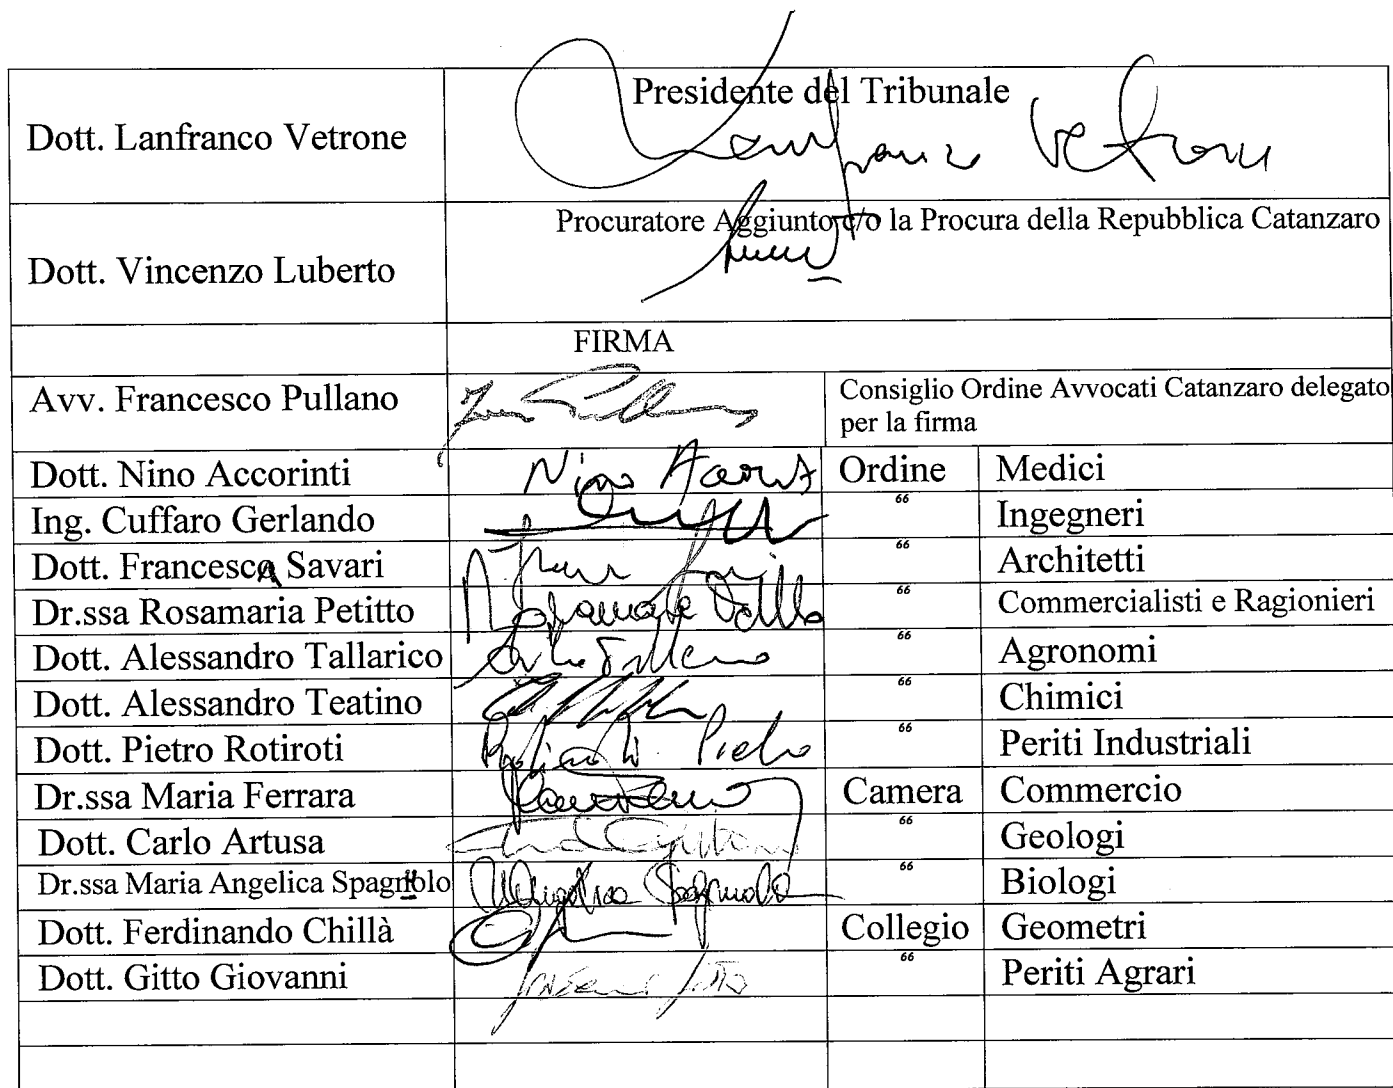 Presidente del Tribunale
Dott. Lanfranco Vetrone
Lanfranco Vetrone
Procuratore Aggiunto c/o la Procura della Repubblica Catanzaro
Dott. Vincenzo Luberto
FIRMA
Avv. Francesco Pullano
Consiglio Ordine Avvocati Catanzaro delegato
per la firma
Dott. Nino Accorinti Nino Ordine Medici
Ing. Cuffaro Gerlando “ Ingegneri
Dott. Francesca Savari “ Architetti
Dr.ssa Rosamaria Petitto “ Commercialisti e Ragionieri
Dott. Alessandro Tallarico “ Agronomi
Dott. Alessandro Teatino “ Chimici
Dott. Pietro Rotiroti Pietro “ Periti Industriali
Dr.ssa Maria Ferrara Camera Commercio
Dott. Carlo Artusa “ Geologi
Dr.ssa Maria Angelica Spagnuolo “ Biologi
Dott. Ferdinando Chillà Collegio Geometri
Dott. Gitto Giovanni “ Periti Agrari